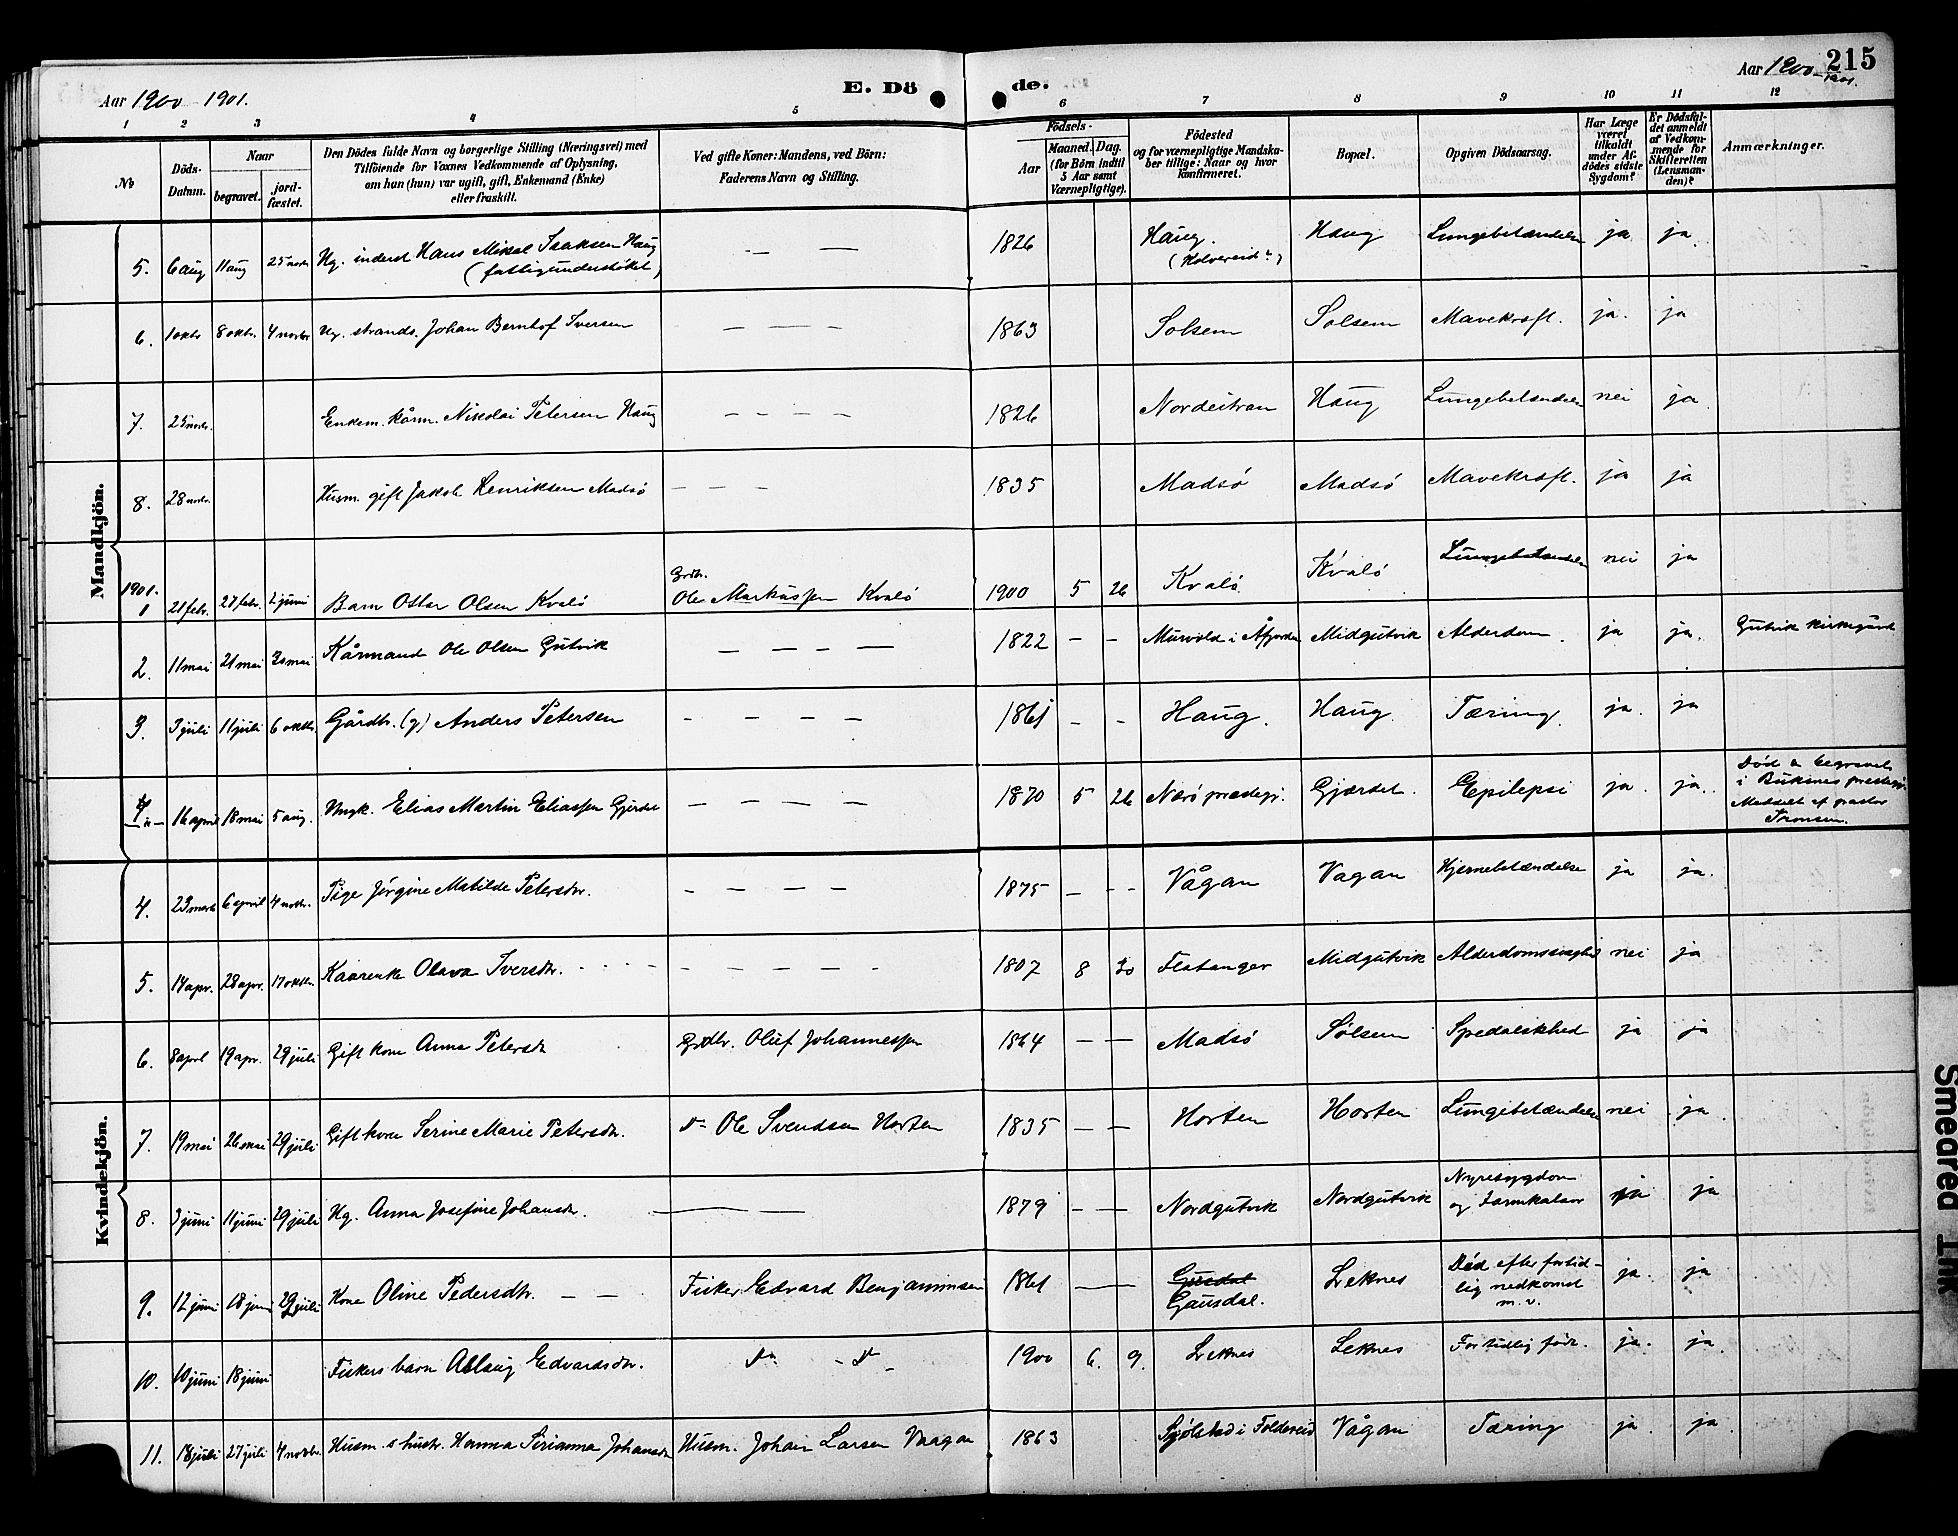 Aar 1900 1901.
E. Dö de.
Aar 1900-1901.
215
1 2 3 4 5 6 7 8 9 10 11 12
No
Döds-Datum.
Naar begravet. jord-fæstet.
Den Dödes fulde Navn og borgerlige Stilling (Næringsvei) med Tilföiende for Voxnes Vedkommende af Oplysning, om han (hun) var ugift, gift, Enkemand (Enke) eller fraskilt.
Ved gifte Koner: Mandens, ved Börn: Faderens Navn og Stilling.
Födsels- Aar Maaned. Dag. (for Börn indtil 5 Aar samt Værnepligtige).
Födested og for værnepligtige Mandskaber tillige: Naar og hvor Konfirmeret.
Bopæl.
Opgiven Dödsaarsag.
Har Læge været tilkaldt under Afdödes sidste Sygdom?
Er Dödsfaldet anmeldt af Vedkommende for Skifteretten (Lensmanden)?
Anmærkninger.
Mandkjön.
5. 6 aug 11 aug 25 novbr Ug. inderst Hans Mikal Isaksen Haug (fattigunderstøttet) — — 1826 Haug. (Kolvereid?) Haug Lungebetændelse ja ja.
6. 1 oktr 8 oktr. 4 novbr Ug. strands. Johan Bernhof Iversen — — — 1863 Solsem Solsem Mavekræft. ja. ja
7. 25 novbr. Enkem. kårm. Nikolai Petersen Haug — — — — 1826 Haug Lungebetændelse nei ja.
8. 28 novbr. Husm. gift Jakob Henriksen Madsø — — — 1835 Madsø Madsø Mavekræft. ja ja
1901. 1 21 febr. 27 febr. 2 juni Barn Ottar Olsen Kvalø Grdbr. Ole Markussen Kvalø 1900 5 26 Kvalø Kvalø Lungebetændelse nei ja
2. 11 mai 21 mai mai Kårmand Ole Olsen Gutvik — — — — 1822 — — Murvold i Åfjorden Midgutvik Alderdom. ja ja. Gutvik kirkegård
3. 3 juli 11 juli 6 oktbr. Gårdbr. (g) Anders Petersen — — — — 1861 — — Haug. Haug. Tæring. ja. ja
4 16 april 18 mai 5 aug. Ungk. Elias Martin Eliassen Gjerdet — — — — 1870 5 26 Nærø præstegj. Gjerdet. Epilepsi ja. ja. Død & begravet i Buksnes præstegj. Meddelt af pastor Tronsen.
Kvindekjön.
4. 23 marts 6 april 4 novbr. Pige Jørgine Matilde Petersdtr. — — — — 1875 — — Vågan Vagan Hjernebetændelse ja ja.
5. 14 apr. 28 apr. 17 oktbr. Kaarenke Olava Iversdtr. — — — — — 1807 8 30 Flatanger Midgutvik Alderdomssvaghed nei ja
6. 8 aprl 19 apr. 29 juli Gift kone Anna Petersdtr Grdbr. Oluf Johannessen 1864 — — Madsø Sølsem Spedalskhed ja ja
7. 19 mai 26 mai 29 juli Gift kone Serine Marie Petersdtr. do Ole Svendsen Horten 1835 — — Horten Horten Lungebetændelse nei ja
8. 3 juni 11 juni 29 juli Ug. Anna Josefine Johansdtr. — — 1879 — — Nordgutvik Nordgutvik Nyresygdom og Tarmkatarr ja ja
9. 12 juni 18 juni 29 juli Kone Oline Pedersdtr. — — Fisker Edvard Benjaminsen 1861 — — Gusdal Gausdal. Leknes Død efter fortidlig nedkomst m.v. ja. ja
10. 10 juni 18 juni Fiskers barn Aslaug Edvardsdtr. do - do - 1900 6. 9. Leknes Leknes For tidlig født. ja. ja
11. 18 juli 27 juli 4 novbr. Husm.s hustr. Hanna Sirianna Johansdtr Husm. Johan Larsen Vaagan 1863 Sjølstad i Foldereid Vågan Tæring ja. ja.
Smeared Ink